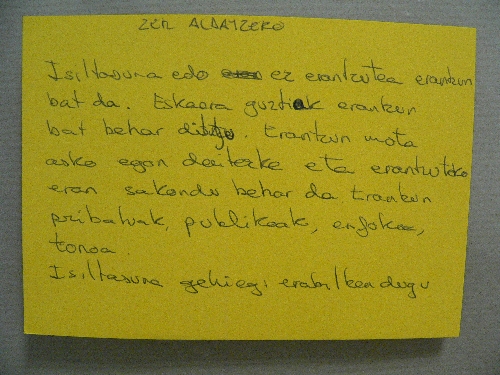 ZER ALDATZERO
Isiltasuna edo ez erantzutea erantzun
bat da. Eskaera guztiak erantzun
bat behar ditugu. Erantzun mota
asko egon daitezke eta erantzuteko
eran sakondu behar da Erantzun
pribatuak, publikoak, enfokea,
tonoa.
Isiltasuna gehiegi erabiltzen dugu